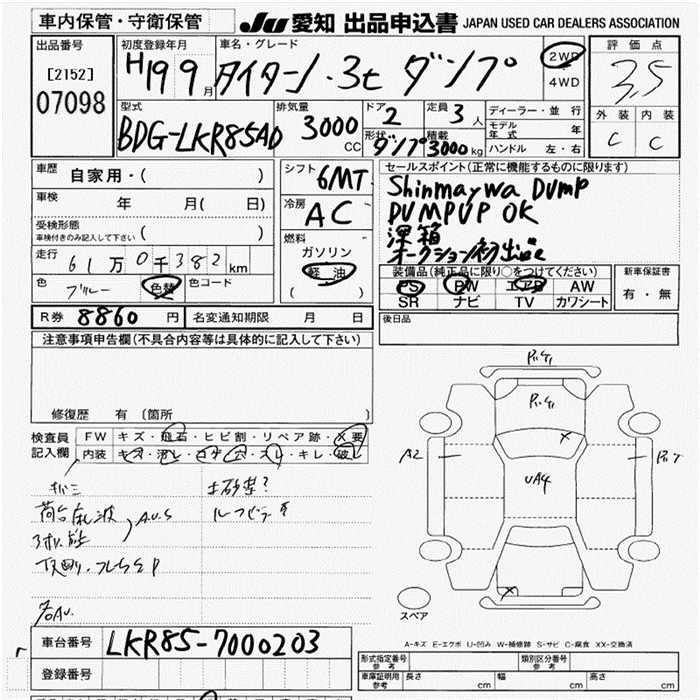 車内保管・守衛保管
JU 愛知 出品申込書 JAPAN USED CAR DEALERS ASSOCIATION
出品番号
[2152]
07098
初度登録年月
H19 9月
車名・グレード
タイタン・3t ダンプ
2WD
4WD
評価点
3,5
外装 内装
C C
型式
BDG-LKR85AD
排気量
3000 CC
ドア
2
形状
ダンプ
定員
3人
積載
3000kg
ディーラー・並行
モデル年式 年
ハンドル 左・右
車歴
自家用・( )
車検
年 月( 日)
受検形態
車検付きのみ記入して下さい ( )
走行
61万0千382km
色
ブルー
色替
色コード
シフト
6MT
冷房
AC
燃料
ガソリン
軽油
( )
セールスポイント(正常に機能するものに限ります)
Shinmaywa DUMP
DUMPUP OK
深箱
オークション初出品
装備品(純正品に限り○をつけてください)
PS PW エアB AW
SR ナビ TV カワシート
新車保証書
有・無
R券 8860円
名変通知期限 月 日
後日品
注意事項申告欄(不具合内容等は具体的に記入して下さい)
修復歴 有〔箇所 〕
検査員記入欄
FW キズ・飛石・ヒビ割・リペア跡・X要
内装 キズ・汚レ・コゲ・穴・スレ・キレ・破レ
土砂禁?
A.U.S
A2
UA4
X
X
スペア
A-キズ E-エクボ U-凹み W-補修跡 S-サビ C-腐食 XX-交換済
車台番号 LKR85-7000203
登録番号
形式指定番号 参考
類別区分番号 参考
車庫証明用 参考
長さ cm 幅 cm 高さ cm